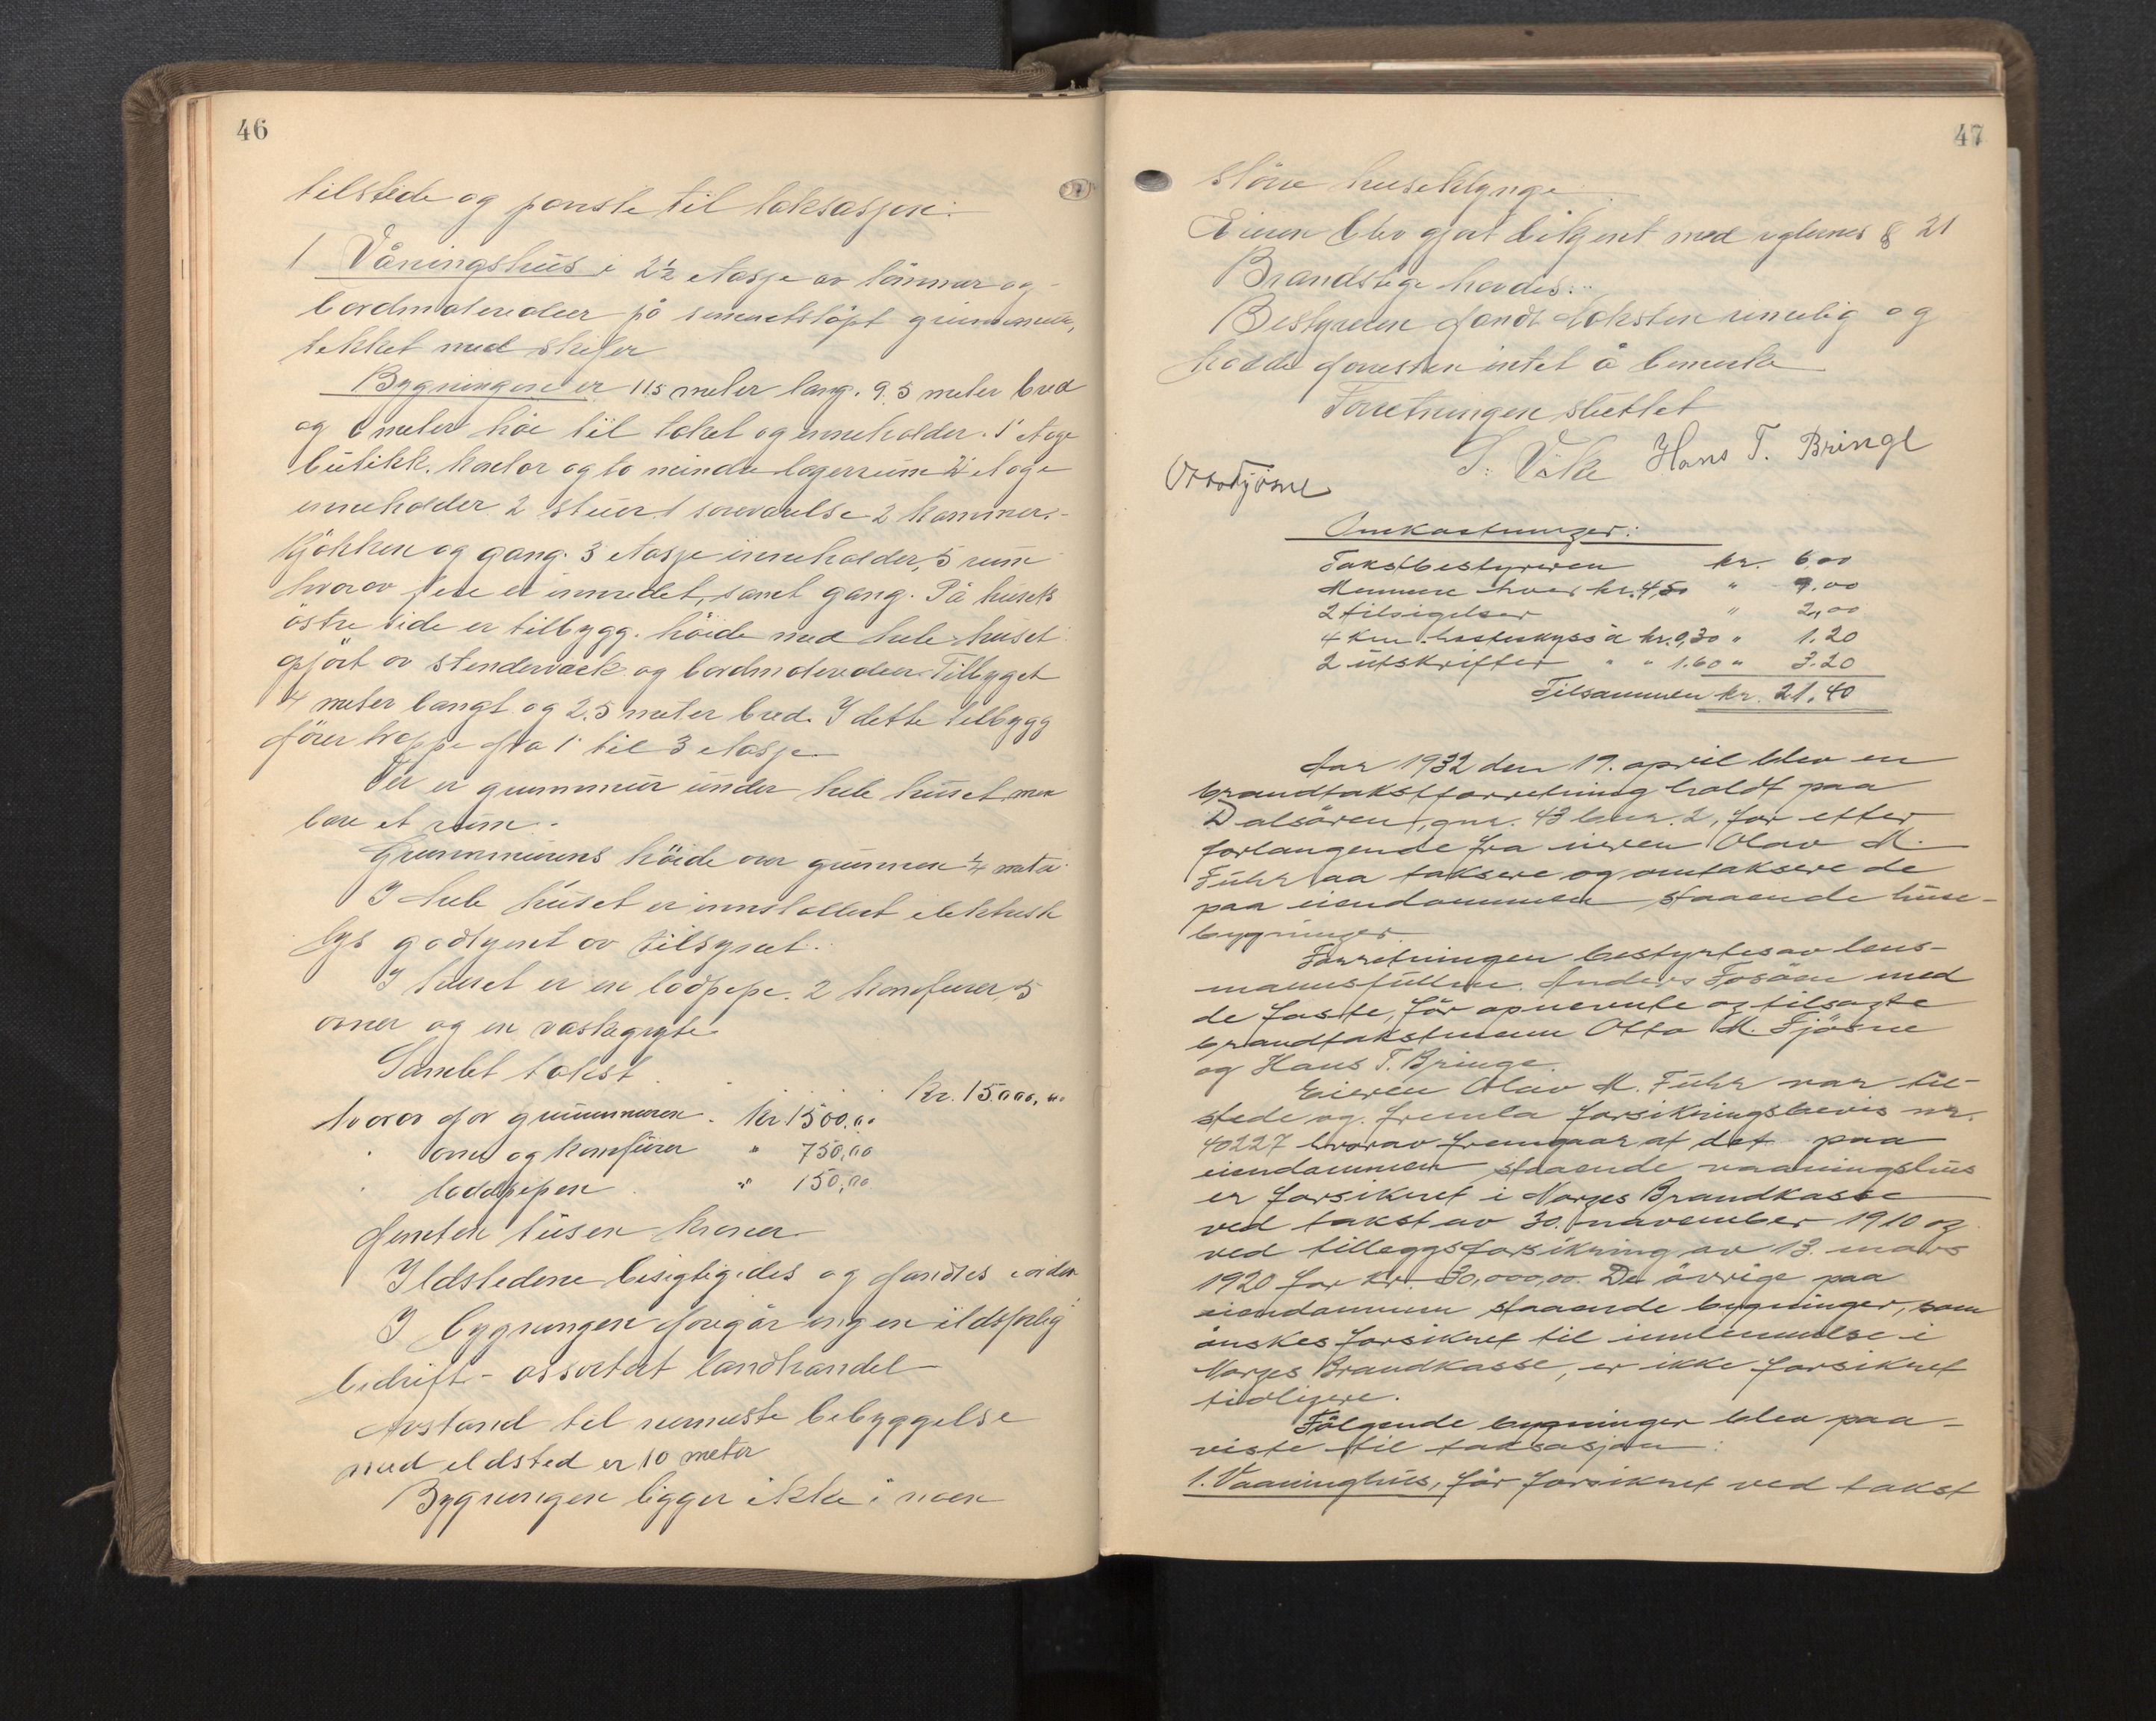 46
tilstede og pånste til taksasjon:
1 Våningshus i 2½ etasje av tömmer og
bordmaterialer på sementstöpt grunnmur,
tekket med skifer
Bygningen er 11.5 meter lang. 9.5 meter bred
og 6 meter höi til taket og inneholder. 1' etage
butikk. kontor og to mindre lagerrum 2' etage
inneholder 2 stuer 1 soveværelse 2 kammer.
kjökken og gang. 3 etasje inneholder, 5 rum
hvorav fere er innredet, samt gang. På husets
östre side er tilbygg. höide med hele huset
opfört av stenderverk og bordmaterialer. Tilbygget
4 meter langt og 2.5 meter bred. I dette tilbygg
förer trappe fra 1' til 3 etasje
Der er grunnmur under hele huset, men
bare et rum.
Grunnmurens höide over grunnen ¼ meter
I hele huset er innstallert elektrisk
lys godkjent av tilsynet.
I huset er en lodpipe. 2 komfurer, 5
ovner og en vaskegryte.
Samlet takst . . . . kr. 15.000,00
hvorav for grunnmuren . kr 1500,00
" ovner og komfürer " 750,00
" loddpipen . " 150,00
femten tusen kroner
Ildstedene besigtigedes og fandtes i orden
I bygningen foregår ingen ildsfarlig
bedrift - assortert landhandel
Avstand til nermeste bebyggelse
med ildsted er 10 meter
Bygningen ligger ikke i noen
47
större huseklynge.
Eieren blev gjort bekjent med reglernes § 21
Brandstige havdes.
Bestyreren fandt taksten rimelig og
hadde forresten intet å bemerke
Forretningen sluttet
S. Vike Hans T. Bringe
Otto Fjösne
Omkostninger:
Takstbestyreren kr. 6,00
Mennene hver kr. 4,50 " 9.00
2 tilsigelser " 2,00
4 km. hesteskyss à kr. 0,30 " 1.20
2 utskrifter " " 1.60 " 3.20
Tilsammen kr. 21.40
Aar 1932 den 19. april blev en
brandtakstforretning holdt paa
Dalsören, gnr. 43 bnr. 2, for efter
forlangende fra eieren Olav M.
Fuhr aa taksere og omtaksere de
paa eiendommen staaende huse-
bygninger.
Forretningen bestyrtes av lens-
mannsfullm. Anders Fosöen med
de faste, för opnevnte og tilsagte
brandtakstmenn Otto M. Fjösne
og Hans T. Bringe.
Eieren Olav M. Fuhr var til-
stede og fremla forsikringsbevis nr.
40227 hvorav fremgaar at det paa
eiendommen staaende vaaningshus
er forsikret i Norges Brandkasse
ved takst av 30. november 1910 og
ved tilleggsforsikring av 13. mars
1920 for kr. 30,000,00. De övrige paa
eiendommen staaende bygninger, som
önskes forsikret til innlemmelse i
Norges Brandkasse, er ikke forsikret
tidligere.
Fölgende bygninger blev paa-
viste til taksasjon:
1. Vaaninghus, för forsikret ved takst